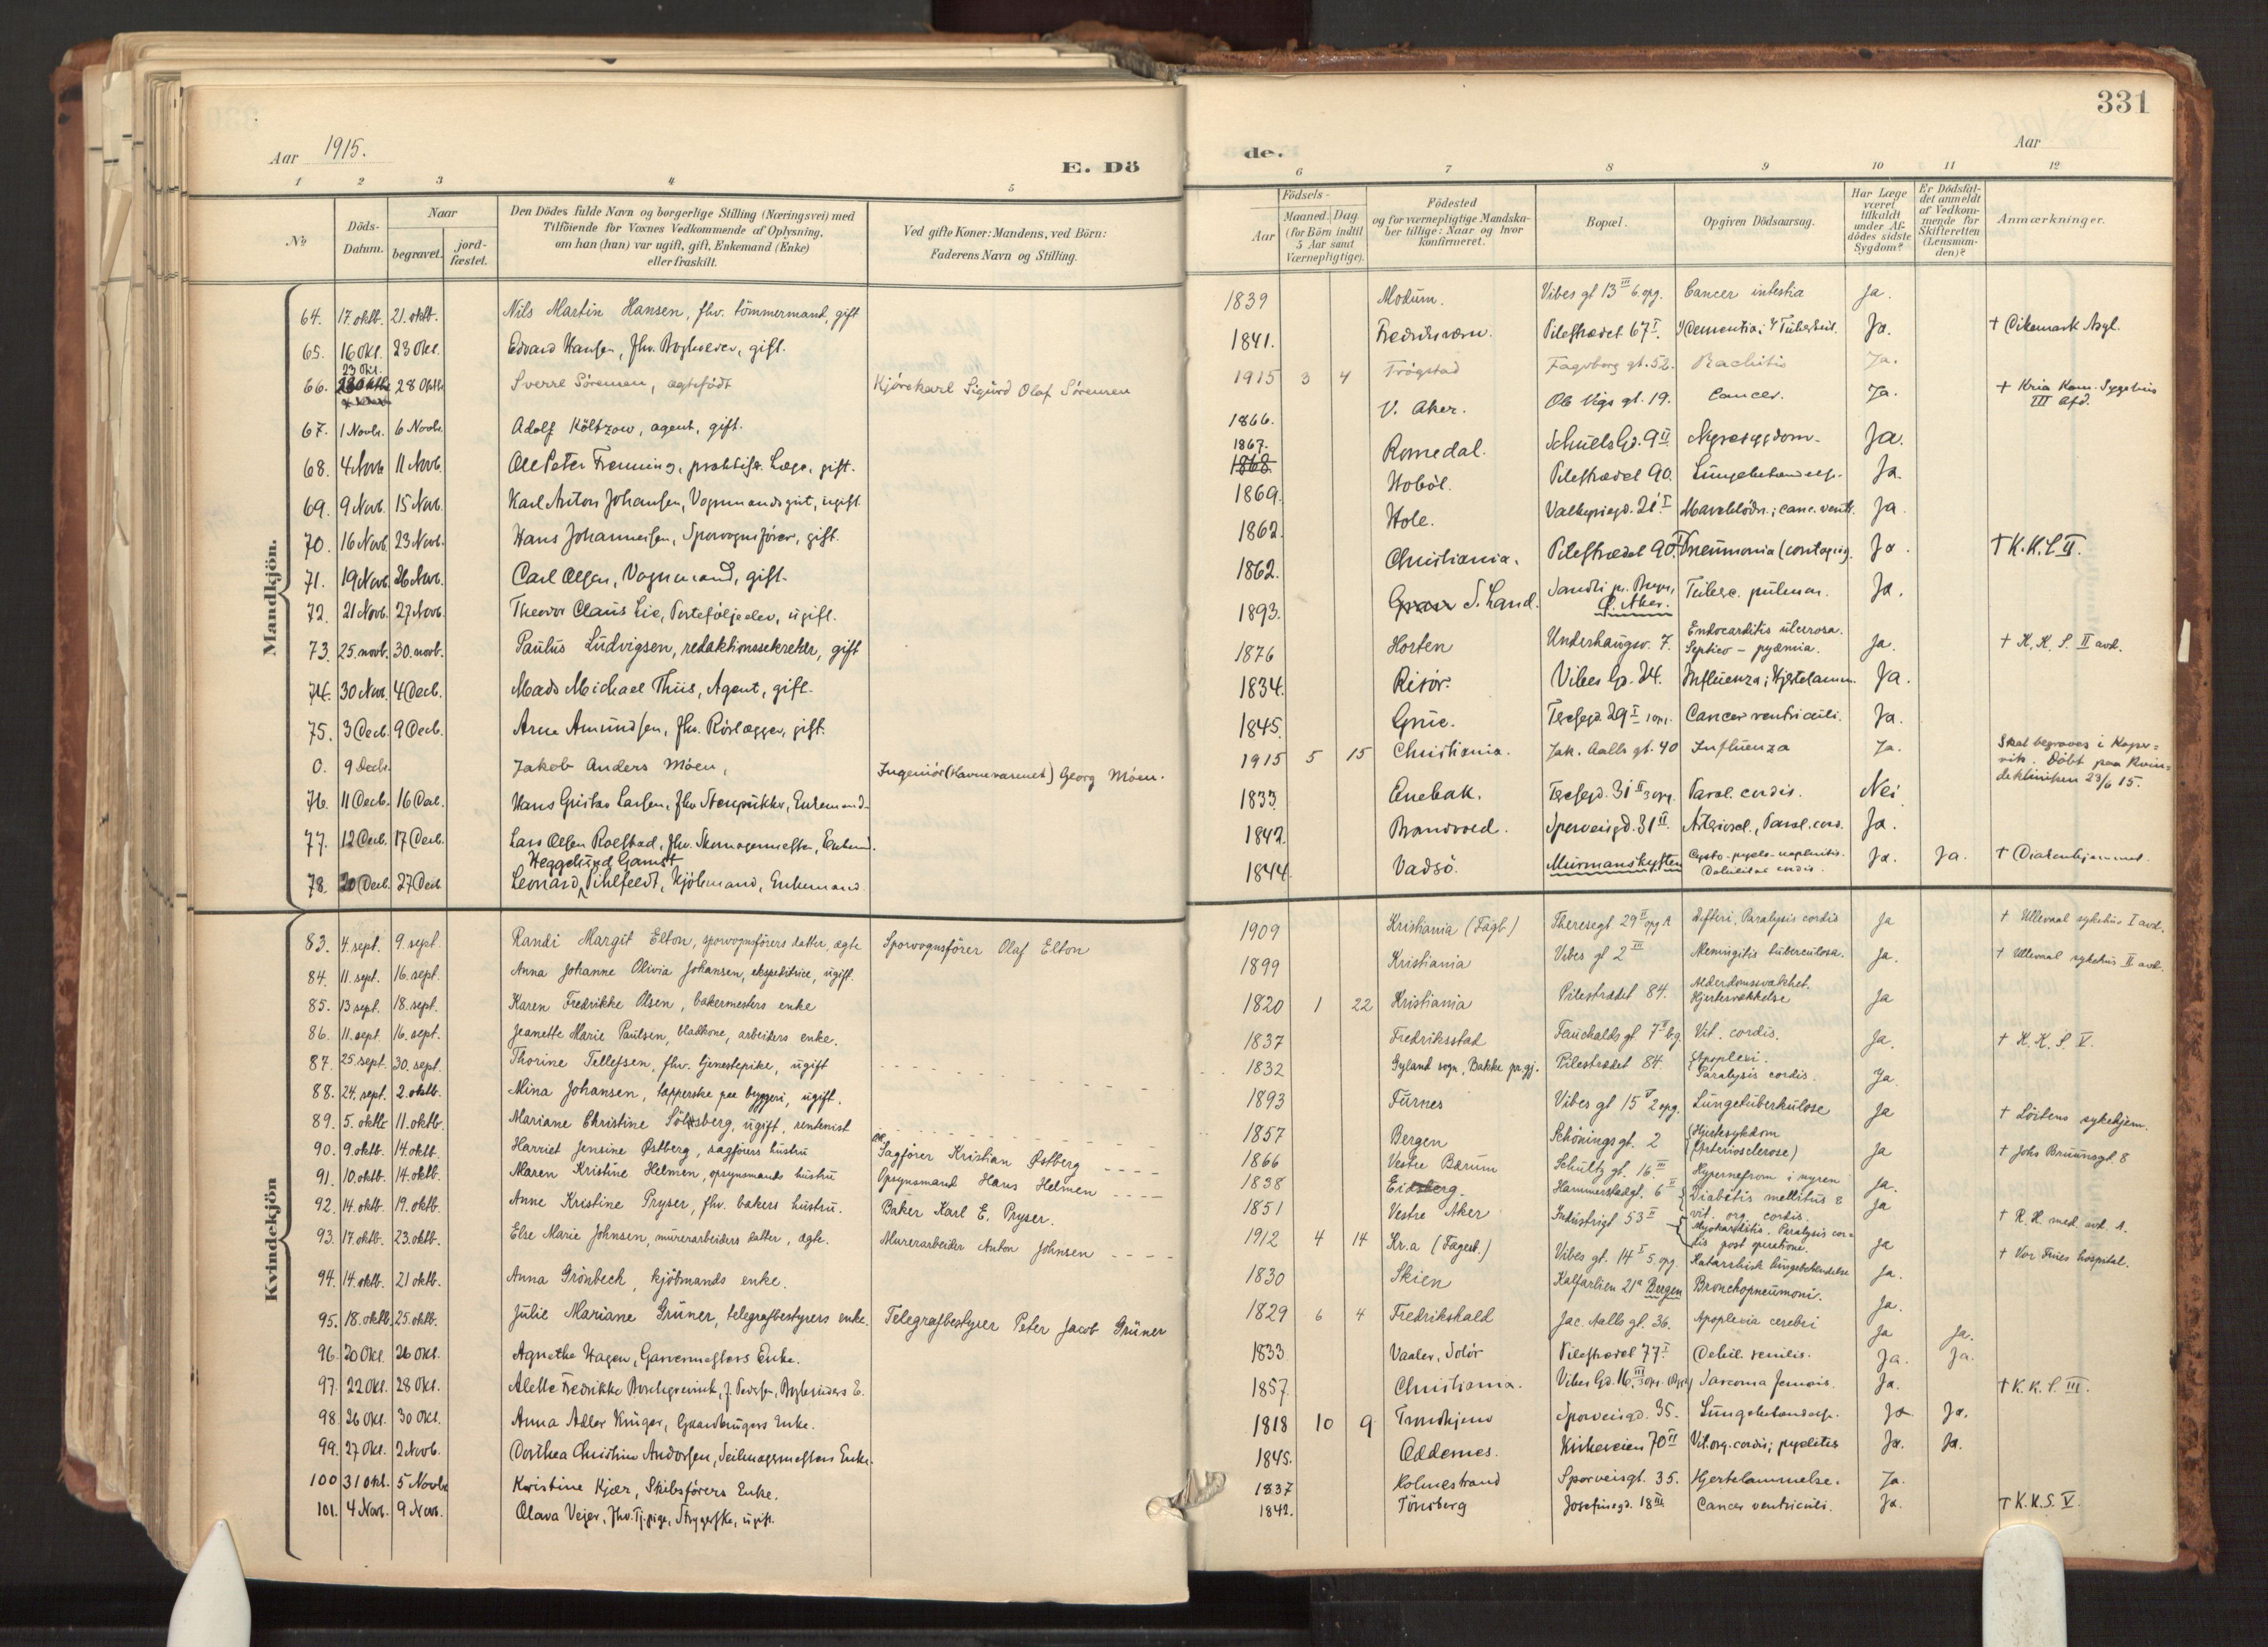 331
Aar 1915.
E. Dö
de.
Aar
1 2 3 4 5 6 7 8 9 10 11 12
№
Döds-Datum.
Naar
begravet.
jord-fæstet.
Den Dödes fulde Navn og borgerlige Stilling (Næringsvei) med
Tilföiende for Voxnes Vedkommende af Oplysning,
om han (hun) var ugift, gift, Enkemand (Enke)
eller fraskilt.
Ved gifte Koner: Mandens, ved Börn:
Faderens Navn og Stilling.
Födsels-
Aar
Maaned. Dag.
(for Börn indtil
5 Aar samt
Værnepligtige).
Födested
og for værnepligtige Mandska-
ber tillige: Naar og hvor
konfirmeret.
Bopæl.
Opgiven Dödsaarsag.
Har Læge
været
tilkaldt
under Af-
dödes sidste
Sygdom?
Er Dödsfal-
det anmeldt
af Vedkom-
mende for
Skifteretten
(Lensman-
den)?
Anmærkninger.
Mandkjön.
64. 17. oktb. 21. oktb. Nils Martin Hansen, fhv. tömmermand, gift 1839 Modum. Vibes gt 13 III 6. opg. Cancer intestia Ja.
65. 16 Okt. 23 Okt. Edvard Hansen, fhv. Bogholder, gift. 1841. Fredriksværn. Pilestrædet 67 I. Dementia; Tuberkul. Ja. † Dikemark Asyl.
66. 23 Okt. 28 Oktb. Sverre Sörensen, ægtefödt Kjörekarl Sigurd Olaf Sörensen 1915 3 4 Trögstad Fagerborg gt. 52. Rachitis Ja.
67. 1 Novb. 6 Novb. Adolf Költzow, agent, gift. 1866. V. Aker. Ole Vigs gt. 19. Cancer. Ja. † Kria Kom. Sygehus
III Afd.
68. 4 Novb 11 Novb. Ole Peter Frenning, praktiser. Læge, gift. 1867. 1868 Romedal. Schultz Gd. 9 II. Nyresygdom. Ja.
69. 9 Novb. 15 Novb. Karl Anton Johansen, Vognmandsgut, ugift. 1869. Hoböl. Pilestrædet 90. Lungebetændelse. Ja.
70. 16 Novb. 23 Novb. Hans Johannesen, Sporvognsförer, gift. 1862. Hole. Valkyriegd. 21 I. Maveblödn.; canc. ventr. Ja
71. 19 Novb. 26 Novb. Carl Olsen, Vognmand, gift. 1862. Christiania. Pilestrædet 90. Pneumonia (contagiog. Ja. † K.K.S II.
72. 21 Novb. 27 Novb. Theodor Claus Lie, Porteföljeelev, ugift. 1893. S. Land. Sandli pr. Bryn, Ö. Aker. Tuberc. pulmon. Ja.
73. 25. novb. 30. novb. Paulus Ludvigsen, redaktionssekretær, gift 1876 Horten Underhaugsv. 7. Endocarditis ulcerosa.
Septico - pyæmia. Ja. † K. K. S. II avd.
74. 30 Nov. 4 Decb. Mads Michael Thiis, Agent, gift. 1834. Risör. Vibes Gd. 24. Influenza; Hjertelamm. Ja.
75. 3 Decb. 9 Decb. Arne Amundsen, fhv. Rörlægger, gift. 1845. Grue. Teresegd. 29 I 1 opg. Cancer ventriculi. Ja.
0. 9 Decb. Jakob Anders Möen, Ingeniör (Havnevæsenet) Georg Möen. 1915 5 15 Christiania. Jak. Aalls gt. 40 Influenza Ja. Skal begraves i Koper-
vik. Döbt paa Kvin-
deklinikken 23/6 15.
76. 11 Decb. 16 Dec. Hans Gustav Larsen, fhv Stenpukker, Enkemand. 1833. Enebak. Teresegd. 31 II 3 opg. Paral. cordis. Nei
77. 12 Decb. 17 Decb. Lars Olsen Rolstad, fhv. Skomagermester, Enkem. 1842. Brandvold. Sporveisgd. 31 II. Arteriosel., Paral. cord. Ja.
78. 20 Decb. 27 Decb Leonard Heggelund Gamst Pihlfeldt, Kjöbmand, Enkemand. 1844. Vadsö. Murmanskysten Cysto-pyelo-nephritis.
Debilitas cordis. Ja. Ja. † Diakonhjemmet.
Kvindekjön
83. 4. sept. 9. sept. Randi Margit Elton, sporvognsförers datter, ægte Sporvognsförer Olaf Elton 1909 Kristiania (Fagb.) Theresegt. 29 II opg A Difteri. Paralysis cordis Ja † Ullevaal sykehus I avd.
84. 11. sept. 16. sept. Anna Johanne Olivia Johansen, ekspeditrice, ugift. 1899 Kristiania Vibes gt 2 III Meningitis tuberculosa. Ja. † Ullevaal sykehus II avd.
85. 13 sept. 18. sept. Karen Fredrikke Olsen, bakermesters enke 1820 1 22 Kristiania Pilestrædet 84. Alderdomssvakhet.
Hjertesvækkelse Ja
86. 11. sept 16. sept. Jeanette Marie Paulsen, bladkone, arbeiders enke. 1837 Fredriksstad Fauchalds gt. 7 I b.g Vit. cordis. Ja. † K. K. S. V.
87. 25. sept. 30. sept. Thorine Tellefsen, fhv. tjenestepike, ugift 1832 Gyland sogn, Bakke pr.gj. Pilestrædet 84. Apoplexi.
Paralysis cordis. Ja.
88. 24. sept. 2. oktb. Mina Johansen, tapperske paa bryggeri, ugift. 1893 Furnes Vibes gt 15 V 2 opg. Lungetuberkulose Ja † Lörtens sykehjem.
89. 5. oktb 11. oktb. Mariane Christine Sölvsberg, ugift, rentenist 1857 Bergen Schönings gt. 2 (Hjertesykdom
(Arteriosclerose) Ja † Johs Bruunsgt. 8
90. 9. oktb. 14. oktb. Harriet Jensine Østberg, sagförers hustru Sagförer Kristian Østberg 1866 Vestre Bærum Schultz gt. 16 III Hypernefrom i nyren Ja.
91. 10. oktb. 14. oktb. Maren Kristine Helmen, opsynsmands hustru Opsynsmand Hans Helmen 1838 Eidsberg. Hammerstadgt. 6 II Diabetis mellitus &
vit. org. cordis. Ja
92. 14. oktb. 19. oktb. Anne Kristine Pryser, fhv. bakers hustru. Baker Karl E. Pryser. 1851 Vestre Aker Industrigt 53 II Myokarditis. Paralysis cor-
dis post operatione. Ja † R. H. med. avd. A.
93. 17. oktb. 23. oktb. Else Marie Johnsen, murerarbeiders datter, ægte. Murerarbeider Anton Johnsen 1912 4 14 Kr.a (Fagerb.) Vibes gt. 14 I 5. opg. Katarrhalsk lungebetændelse Ja. † Vor Frues hospital.
94. 14. oktb. 21 oktb. Anna Grönbech, kjöbmands enke. 1830 Skien Kalfarlien 21ª Bergen Bronchopneumoni. Ja.
95. 18. oktb. 25. oktb. Julie Mariane Grüner, telegrafbestyrers enke. Telegrafbestyrer Peter Jacob Grüner 1829 6 4 Fredrikshald Jac. Aalls gt. 36. Apoplexia cerebri Ja Ja.
96. 20 Okt. 26 Okt. Agnethe Hagen, Garvermesters Enke. 1833 Vaaler, Solör Pilestrædet 77 I. Debil. senilis. Ja. Ja.
97. 22 Okt. 28 Okt. Alette Fredrikke Borchgrevink, f. Pedersen, Bogbinders E. 1857. Christiania. Vibes Gd. 16 III 3 opg. Sarcoma femoris. Ja. † K. K. S. III.
98. 26 Okt. 30 Okt. Anna Adler Krüger, Gaardbrugers Enke. 1818 10 9 Trondhjem Sporveisgd. 35. Lungebetændelse. Ja Ja.
99. 27 Okt. 2 Novb. Dorthea Christine Andersen, Seilmagermesters Enke. 1845. Oddernes. Kirkeveien 70 II Vit. org. cordis; pyelites Ja. Ja.
100 31 Okt. 5 Novb. Kristine Kjær, Skibsförers Enke. 1837 Holmestrand Sporveisgt. 35. Hjertelammelse. Ja.
101. 4 Nov. 9 Nov. Olava Vejer, fhv. Tj.pige, Strygerske, ugift. 1842. Tönsberg Josefinegd. 18 III Cancer ventriculi. Ja. † K.K.S. V.